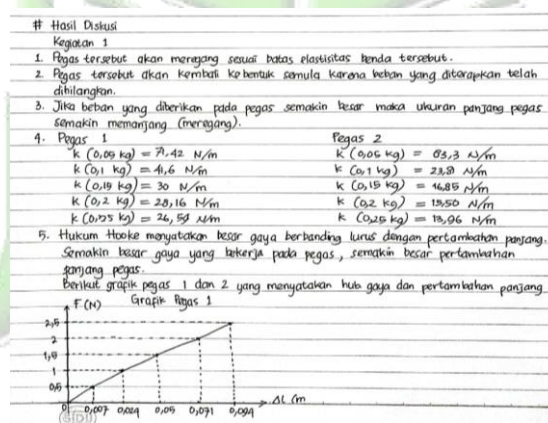 # Hasil Diskusi
Kegiatan 1
1. Pegas tersebut akan meregang sesuai batas elastisitas benda tersebut.
2. Pegas tersebut akan kembali ke bentuk semula karena beban yang diterapkan telah
dihilangkan.
3. Jika beban yang diberikan pada pegas semakin besar maka ukuran panjang pegas
semakin memanjang (meregang).
4. Pegas 1
k (0,05 kg) = 71,42 N/m
k (0,1 kg) = 41,6 N/m
k (0,15 kg) = 30 N/m
k (0,2 kg) = 28,16 N/m
k (0,25 kg) = 26,59 N/m
Pegas 2
k (0,05 kg) = 83,3 N/m
k (0,1 kg) = 23,8 N/m
k (0,15 kg) = 16,85 N/m
k (0,2 kg) = 15,50 N/m
k (0,25 kg) = 13,96 N/m
5. Hukum Hooke menyatakan besar gaya berbanding lurus dengan pertambahan panjang.
Semakin besar gaya yang bekerja pada pegas, semakin besar pertambahan
panjang pegas.
Berikut grafik pegas 1 dan 2 yang menyatakan hub gaya dan pertambahan panjang
F (N)
Grafik Pegas 1
2,5
2
1,5
1
0,5
0 0,007 0,024 0,05 0,071 0,094
ΔL (m
SIDU